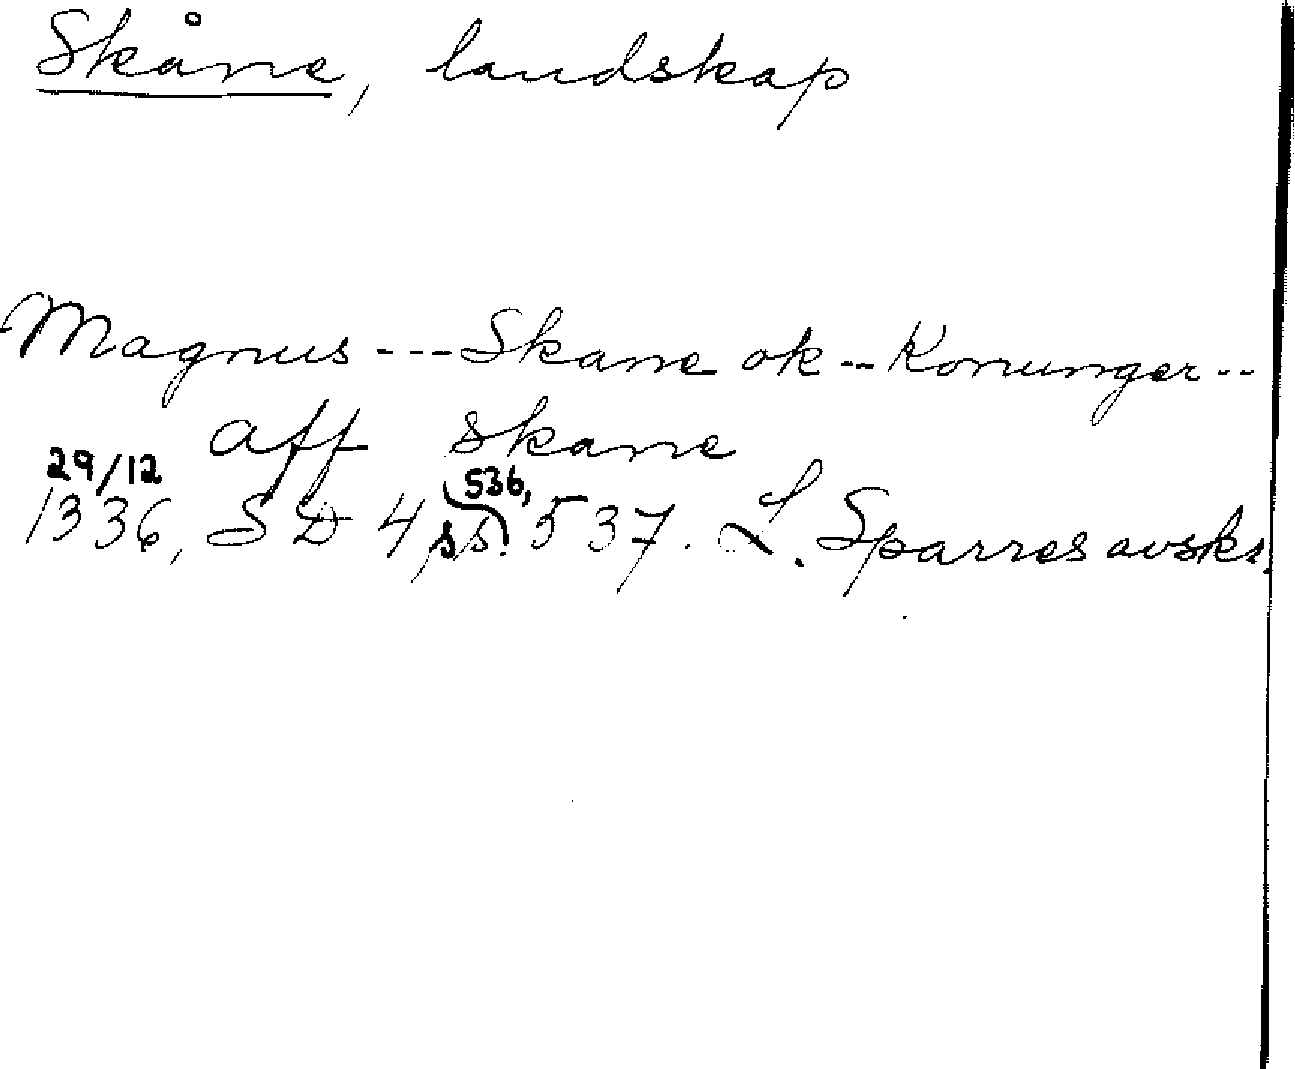 Skåne, landskap
Magnus --- Skane ok -- Konunger --
aff skane
29/12
1336, SD 4 ss. 536, 537. L. Sparres avskr.